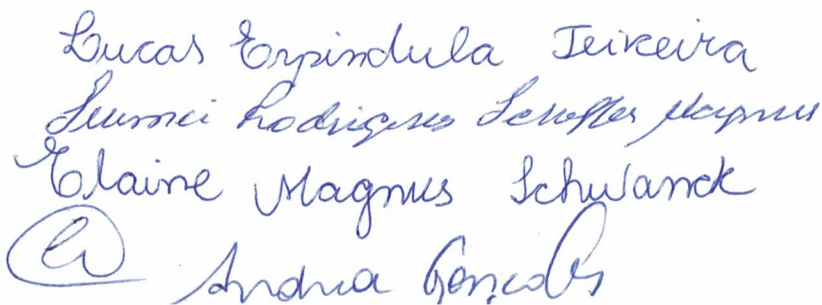 Lucas Espindula Teixeira
Rodrigues Scheffer Magnus
Elaine Magnus Schwanck
Andréa Gonçalves